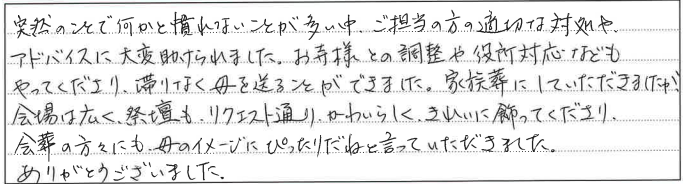 突然のことで何かと慣れないことが多い中、ご担当の方の適切な対処や、
アドバイスに大変助けられました。お寺様との調整や役所対応なども
やってくださり、滞りなく母を送ることができました。家族葬にしていただきましたが、
会場は広く、祭壇も、リクエスト通り、かわいらしく、きれいに飾ってくださり、
会葬の方々にも、母のイメージにぴったりだねと言っていただきました。
ありがとうございました。